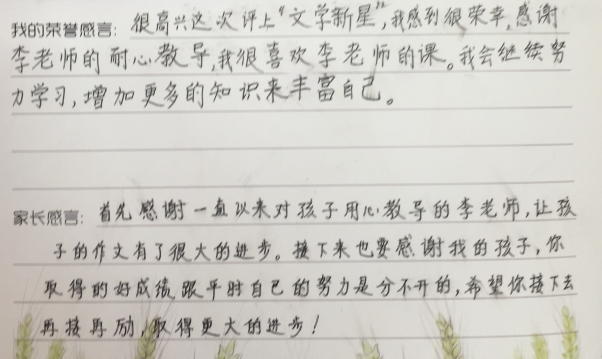 我的荣誉感言：很高兴这次评上“文学新星”，我感到很荣幸，感谢
李老师的耐心教导，我很喜欢李老师的课。我会继续努
力学习，增加更多的知识来丰富自己。
家长感言：首先感谢一直以来对孩子用心教导的李老师，让孩
子的作文有了很大的进步。接下来也要感谢我的孩子，你
取得的好成绩跟平时自己的努力是分不开的，希望你接下去
再接再励，取得更大的进步！